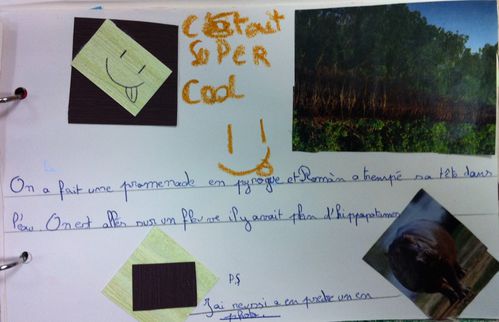 C'était
SUPER
COOL
On a fait une promenade en pyrogue et Romàn a trempé sa tête dans
l'eau. On est allés sur un fleuve il y avait plin d'hippopotames
P.S
J'ai reussi a en prendre un en
photo.